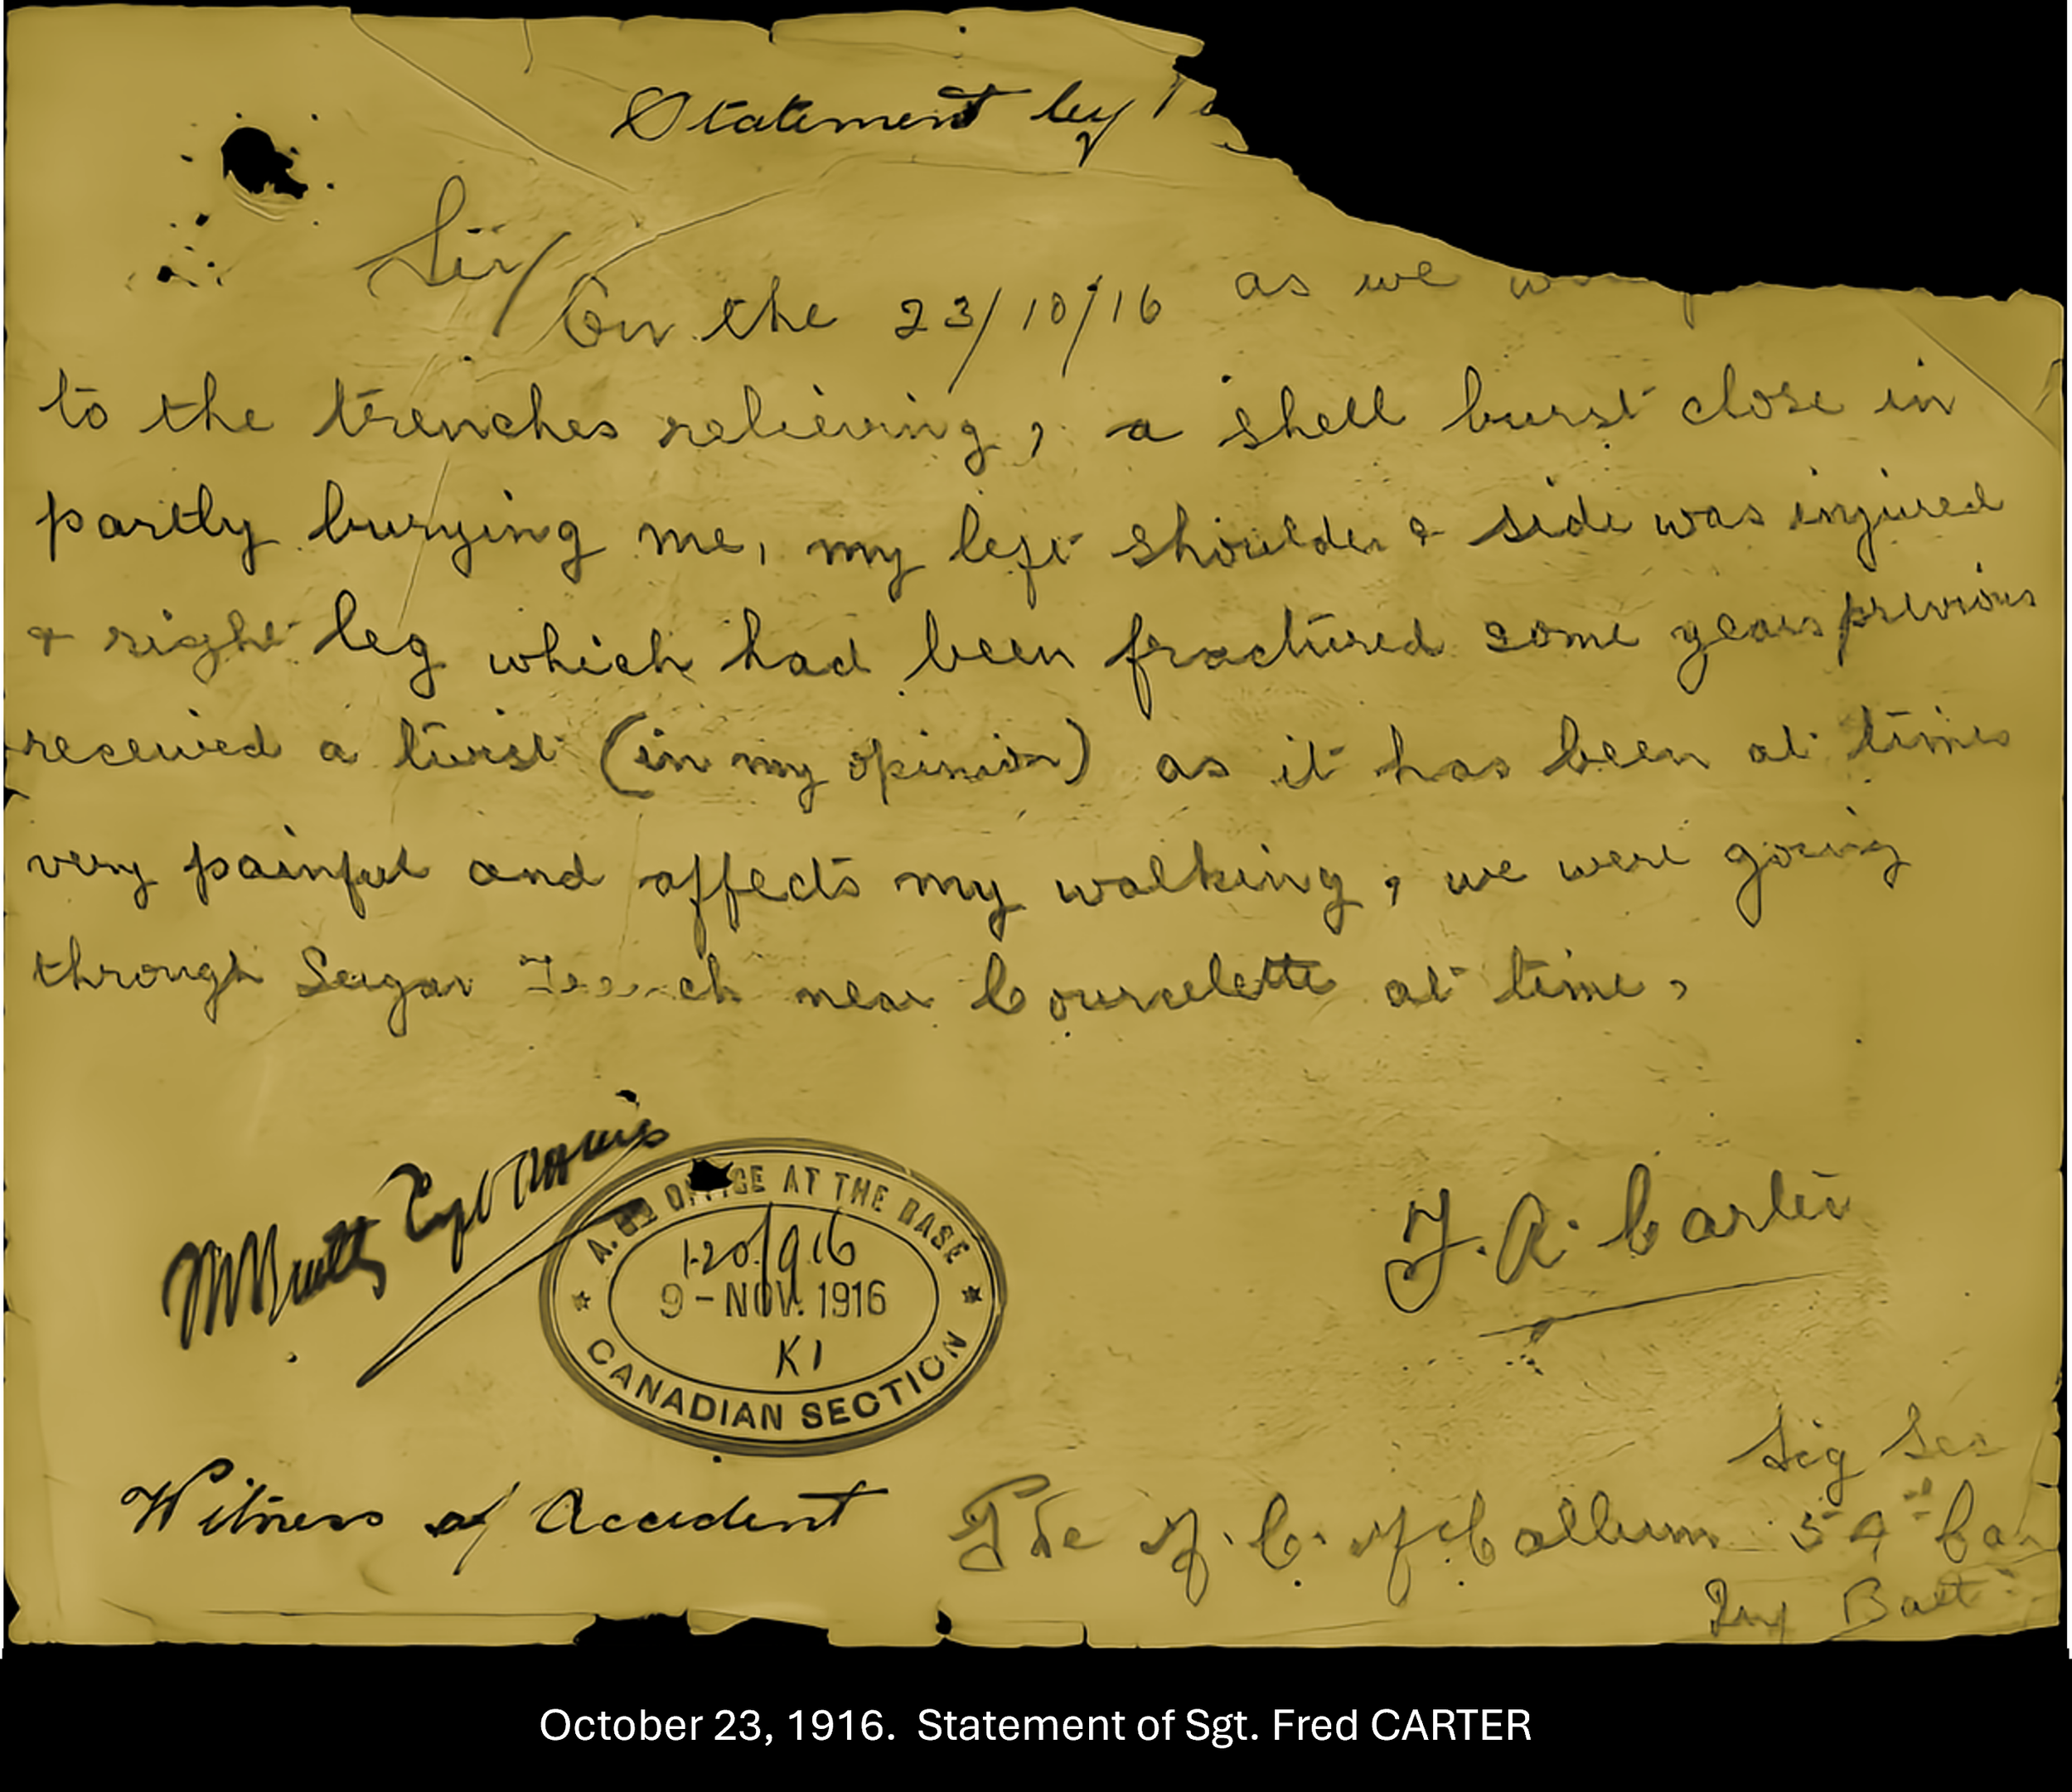 Statement by
Sir/
On the 23/10/16 as we
to the trenches relieving, a shell burst close in
partly burying me, my left shoulder & side was injured
& right leg which had been fractured some years previous
received a twist (in my opinion) as it has been at times
very painful and affects my walking, we were going
through Sugar Trench near Courcelette at time,
OFFICE AT THE BASE
9-NOV. 1916
K1
CANADIAN SECTION
F. A. Carter
Sig Sec
Witness of Accident Pte J. C. McCallum 54th Can
Batt
October 23, 1916. Statement of Sgt. Fred CARTER